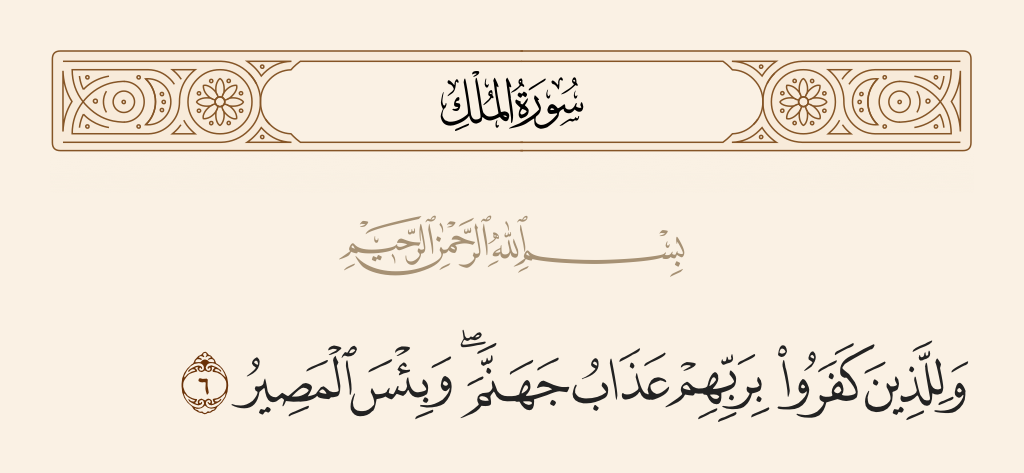 سُورَةُ المُلْكِ
بِسْمِ ٱللَّهِ ٱلرَّحْمَٰنِ ٱلرَّحِيمِ
وَلِلَّذِينَ كَفَرُوا۟ بِرَبِّهِمْ عَذَابُ جَهَنَّمَ ۖ وَبِئْسَ ٱلْمَصِيرُ ٦